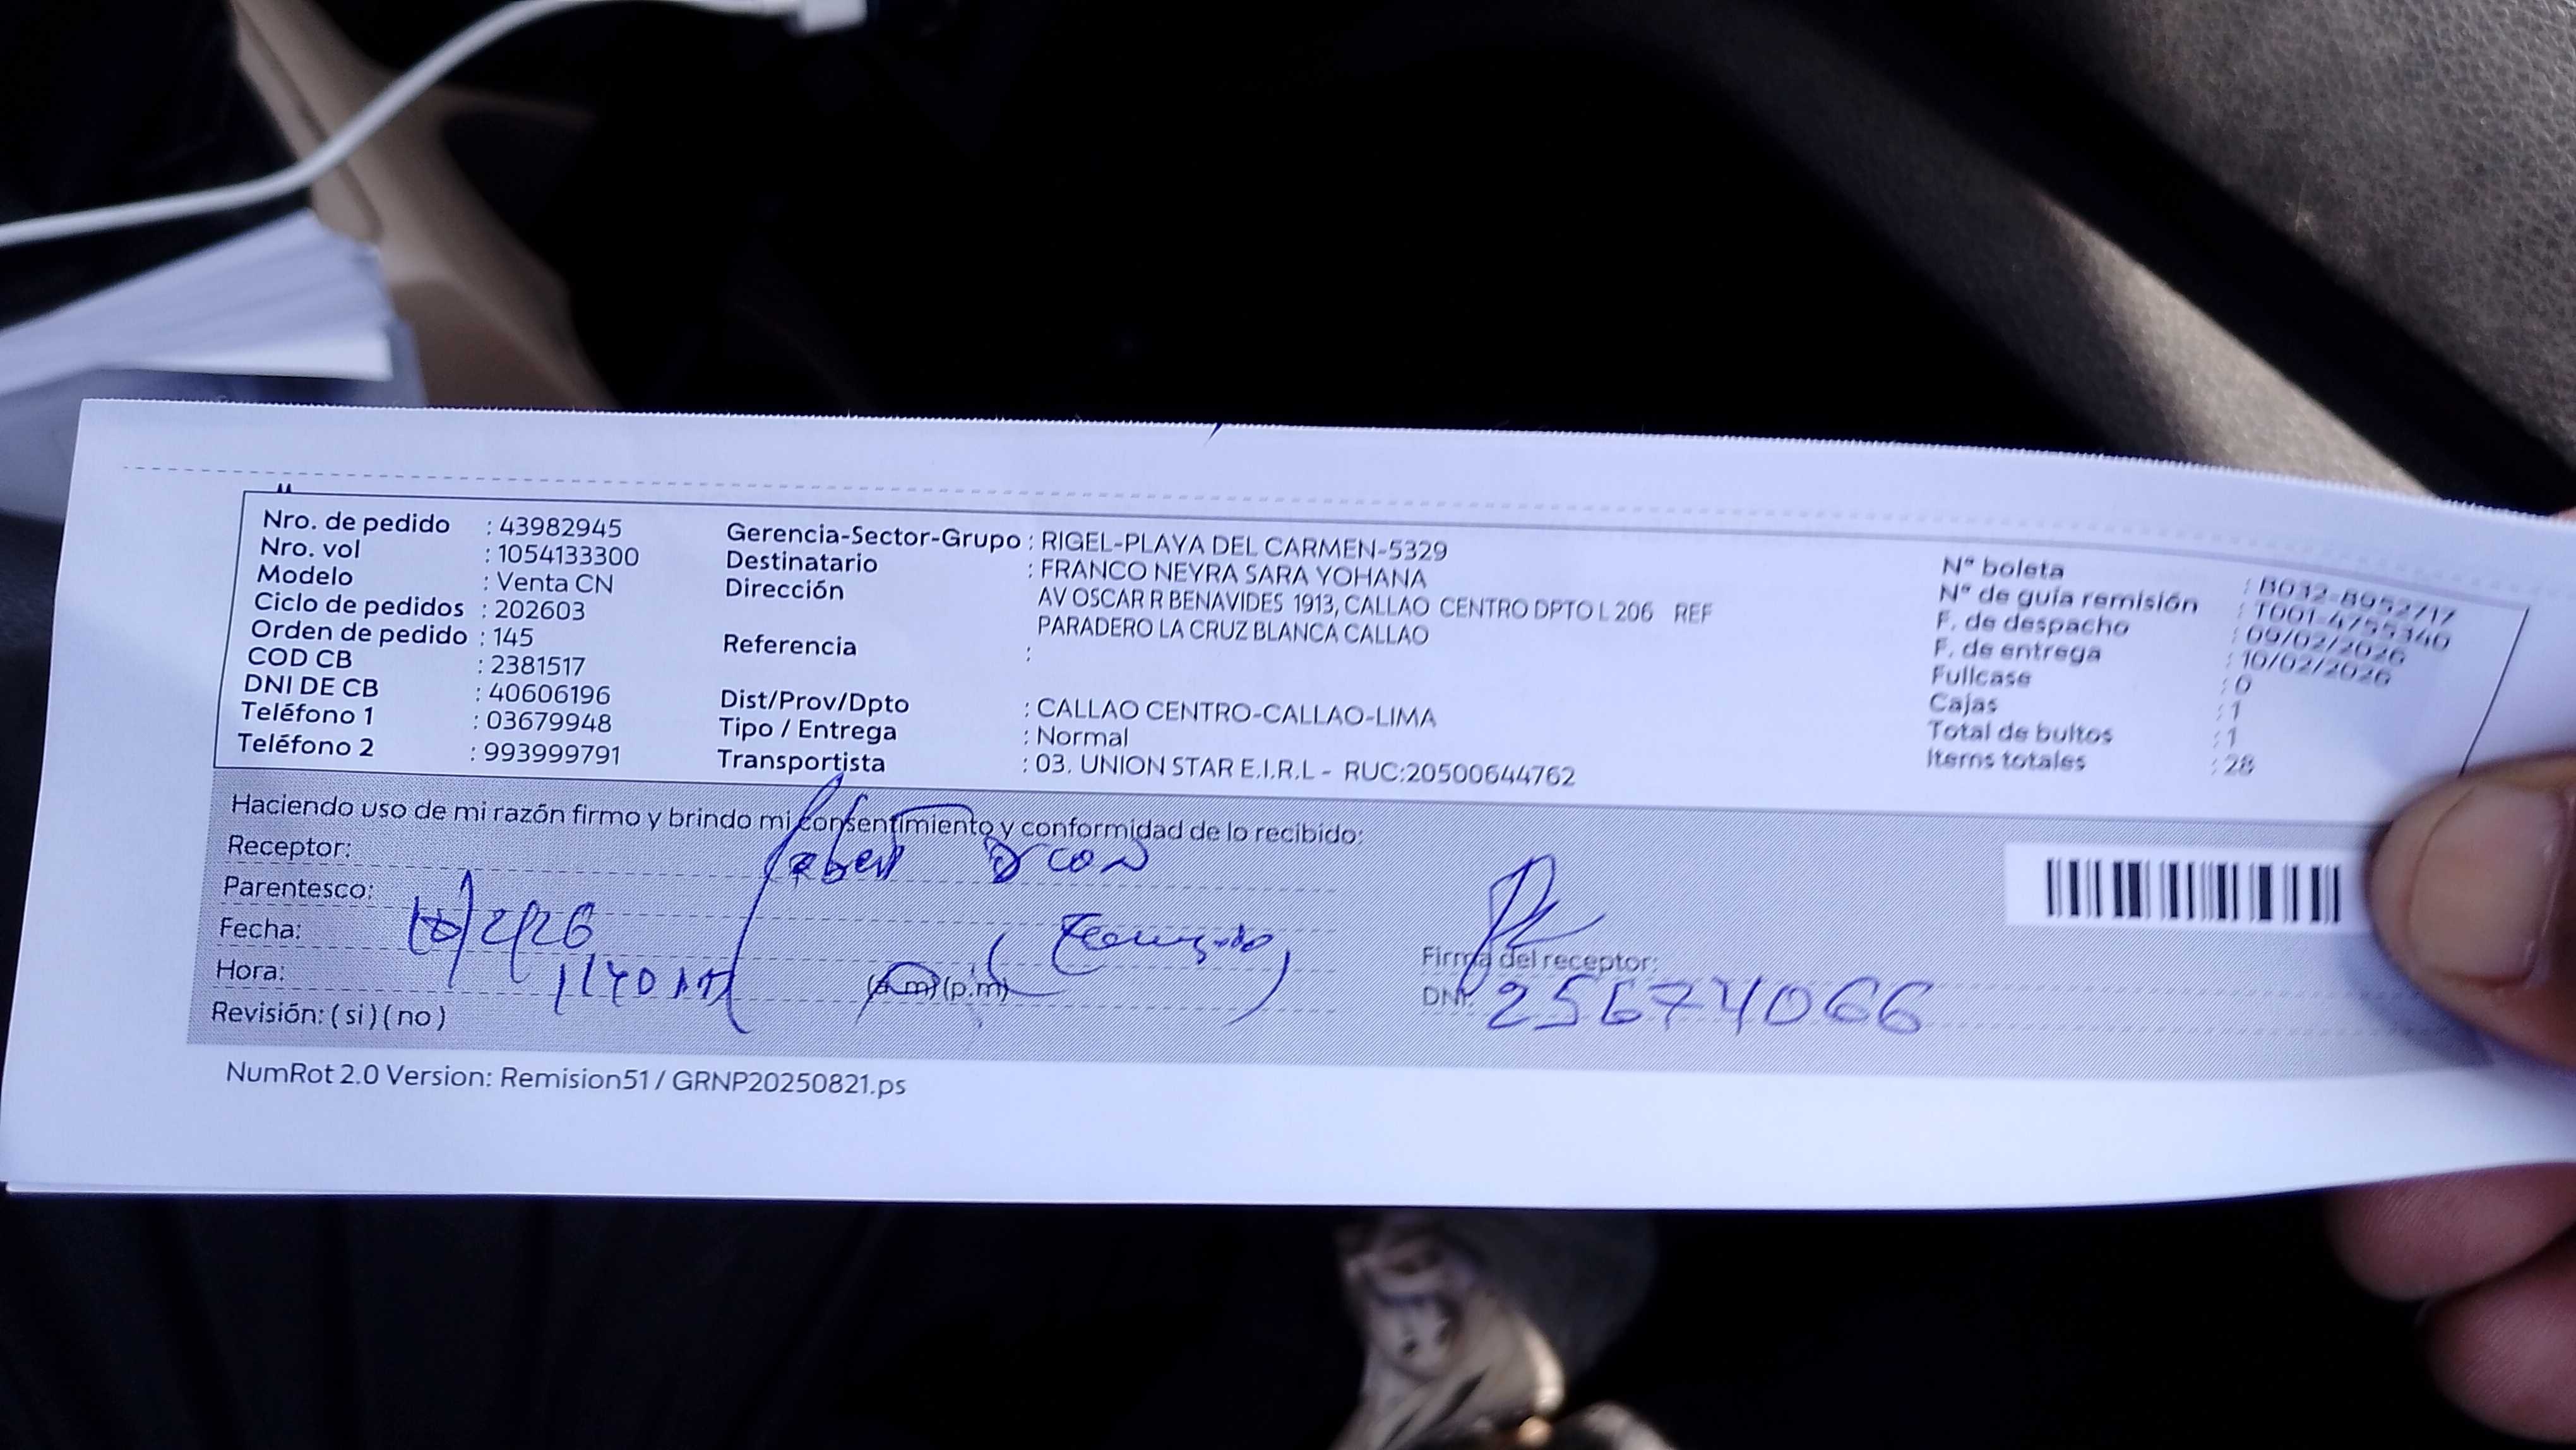 Nro. de pedido : 43982945
Nro. vol : 1054133300
Modelo : Venta CN
Ciclo de pedidos : 202603
Orden de pedido : 145
COD CB : 2381517
DNI DE CB : 40606196
Teléfono 1 : 03679948
Teléfono 2 : 993999791
Gerencia-Sector-Grupo : RIGEL-PLAYA DEL CARMEN-5329
Destinatario : FRANCO NEYRA SARA YOHANA
Dirección AV OSCAR R BENAVIDES 1913, CALLAO CENTRO DPTO L 206 REF
PARADERO LA CRUZ BLANCA CALLAO
Referencia :
Dist/Prov/Dpto : CALLAO CENTRO-CALLAO-LIMA
Tipo / Entrega : Normal
Transportista : 03. UNION STAR E.I.R.L - RUC:20500644762
N° boleta : B032-8952717
N° de guía remisión : T001-4755340
F. de despacho : 09/02/2026
F. de entrega : 10/02/2026
Fullcase : 0
Cajas : 1
Total de bultos : 1
Items totales : 28
Haciendo uso de mi razón firmo y brindo mi consentimiento y conformidad de lo recibido:
Receptor:
Parentesco:
Fecha:
Hora: (a.m)(p.m)
Revisión: ( si ) ( no )
Firma del receptor:
DNI: 25674066
NumRot 2.0 Version: Remision51 / GRNP20250821.ps